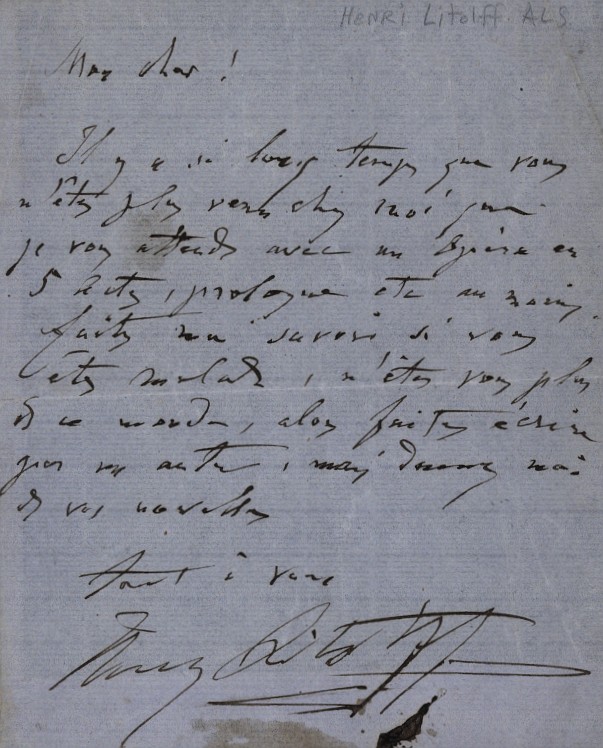 Henri Litolff. ALS
Mon cher !
Il y a si long temps que vous
n'êtes plus venu chez moi que
je vous attends avec un Opéra en
5 Actes, prologue etc au moins.
faites moi savoir si vous
êtes malade, n'êtes vous plus
de ce monde, alors faites écrire
par un autre, mais donnez moi
de vos nouvelles
tout à vous
Henry Litolff